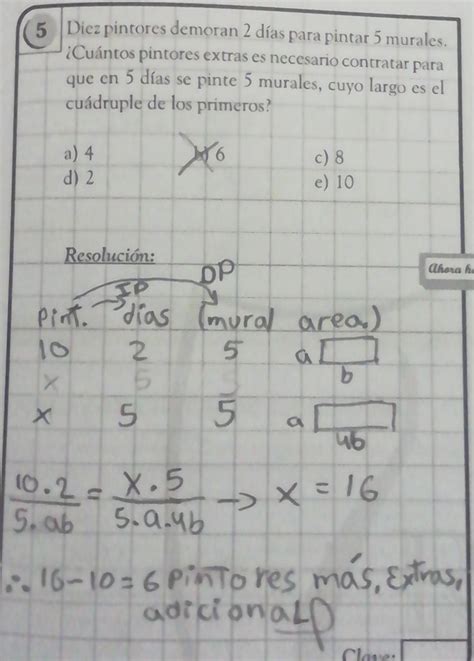 5 Diez pintores demoran 2 días para pintar 5 murales.
¿Cuántos pintores extras es necesario contratar para
que en 5 días se pinte 5 murales, cuyo largo es el
cuádruple de los primeros?
a) 4 b) 6 c) 8
d) 2 e) 10
Resolución:
Ahora h
IP DP
Pint. días (mural area.)
10 2 5 a
b
x 5
x 5 5 a
4b
10.2/5.ab = x.5/5.a.4b → x = 16
∴ 16-10 = 6 Pintores más, Extras,
adicional
Clave: